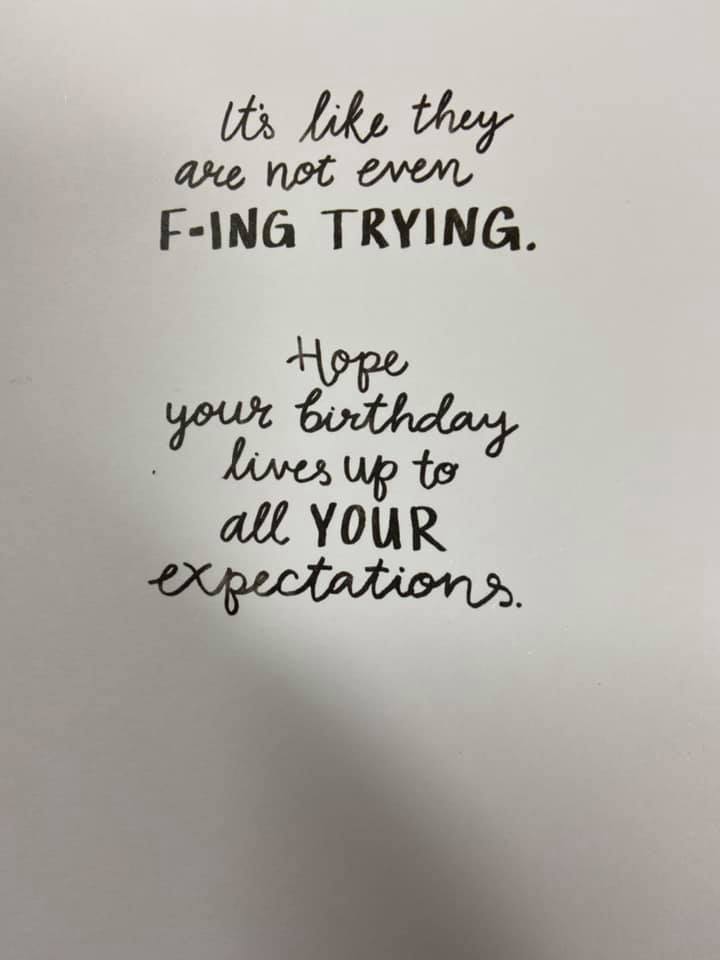 It's like they
are not even
F-ING TRYING.
Hope
your birthday
lives up to
all YOUR
expectations.